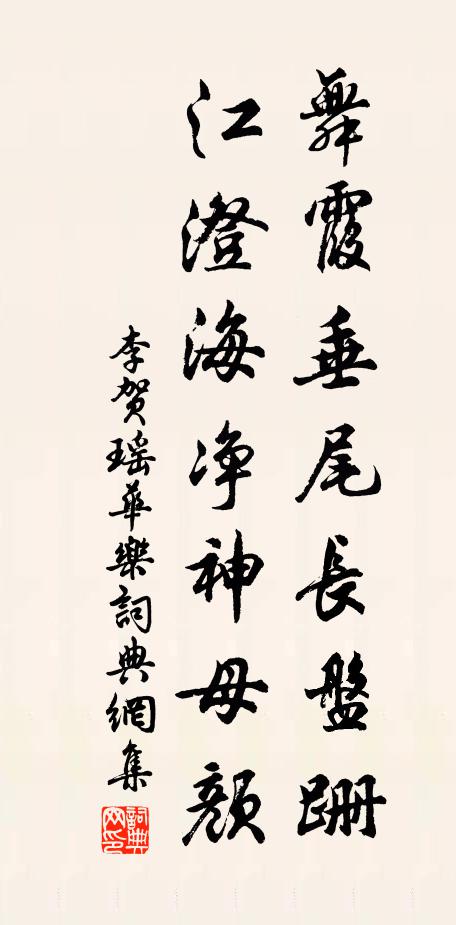 舞霞垂尾長盤跚
江澄海净神母顔
李賀瑶華樂詞典網集
詞典網印